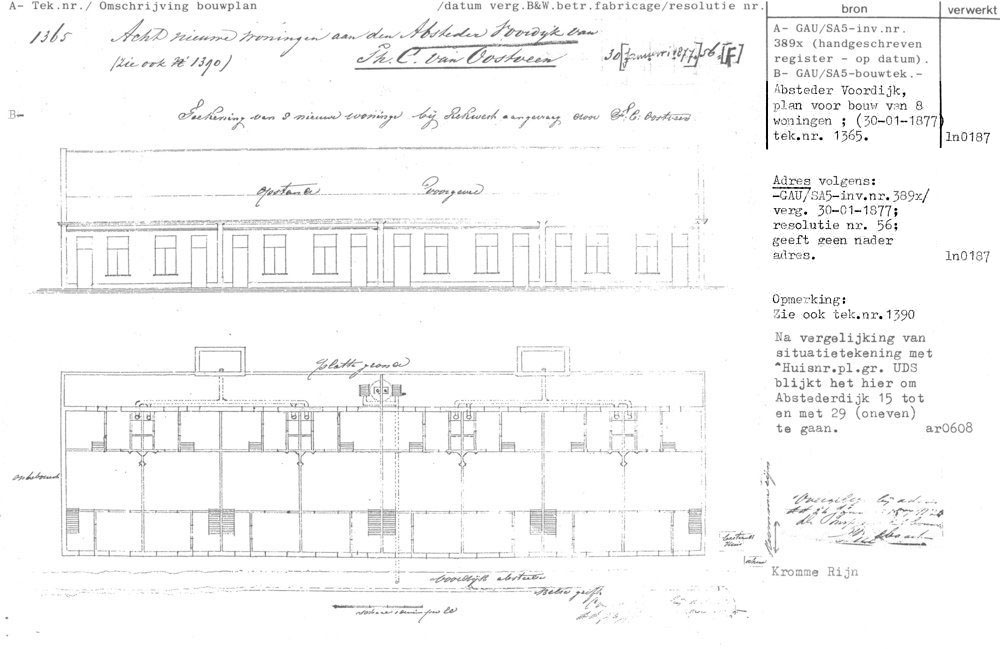 A- Tek.nr./ Omschrijving bouwplan /datum verg.B&W.betr.fabricage/resolutie nr.
bron verwerkt
1365 Acht nieuwe woningen aan den Absteder Voordyk van
(Zie ook No 1390) Th. C. van Oostveen 30 [Januari 1877.] 56. [F]
A- GAU/SA5-inv.nr.
389x (handgeschreven
register - op datum).
B- GAU/SA5-bouwtek.-
Absteder Voordijk,
plan voor bouw van 8
woningen ; (30-01-1877)
tek.nr. 1365. ln0187
B- Teekening van 8 nieuwe woninge bij aangevraag door
opstand Voorgevel
Adres volgens:
-GAU/SA5-inv.nr.389x/
verg. 30-01-1877;
resolutie nr. 56;
geeft geen nader
adres. ln0187
Opmerking:
Zie ook tek.nr.1390
Na vergelijking van
situatietekening met
"Huisnr.pl.gr. UDS
blijkt het hier om
Abstederdijk 15 tot
en met 29 (oneven)
te gaan. ar0608
Platte grond
onbebouwd
Kromme Rijn